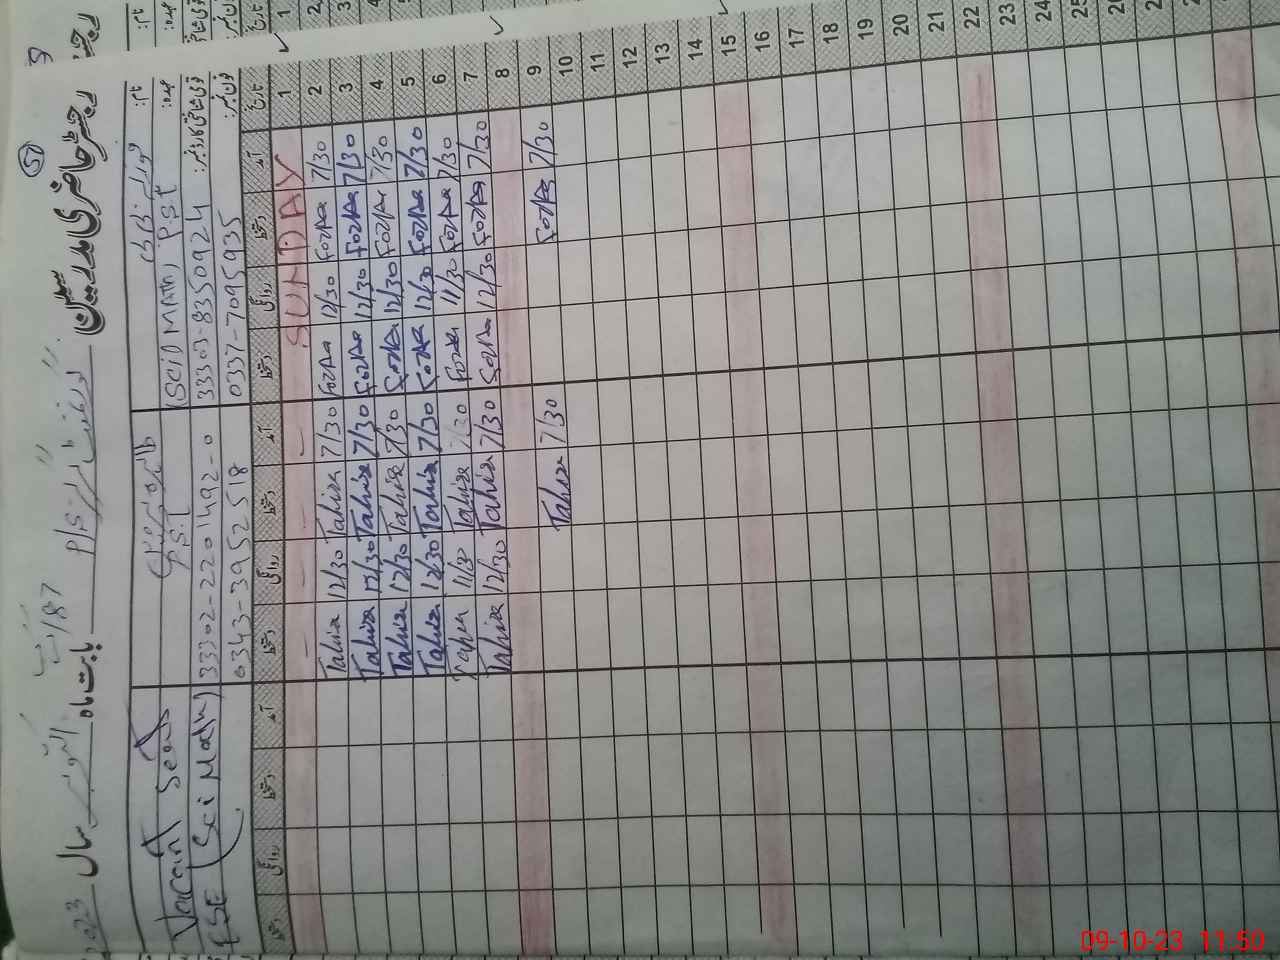 رجسٹر حاضری مدرسین
50
بابت ماہ اکتوبر سال 2023
نام:
عہدہ:
قومی شناختی کارڈ نمبر:
فون نمبر:
(SCiD MATH) PST
33303-8350924
0337-7095935
PST
33302-2201492-0
0343-3952518
Vacant Seat
ESE (Sci Math)
تاریخ آمد دستخط روانگی دستخط آمد دستخط روانگی دستخط آمد دستخط روانگی دستخط
1 SUNDAY
2 7/30 Fozia 12/30 Fozia 7/30 Tahira 12/30 Tahira
3 7/30 Fozia 12/30 Fozia 7/30 Tahira 12/30 Tahira
4 7/30 Fozia 12/30 Fozia 7/30 Tahira 12/30 Tahira
5 7/30 Fozia 12/30 Fozia 7/30 Tahira 12/30 Tahira
6 7/30 Fozia 11/30 Fozia 7/30 Tahira 11/30 Tahira
7 7/30 Fozia 12/30 Fozia 7/30 Tahira 12/30 Tahira
8
9 7/30 Fozia 7/30 Tahira
10
11
12
13
14
15
16
17
18
19
20
21
22
23
24
25
26
09-10-23 11:50